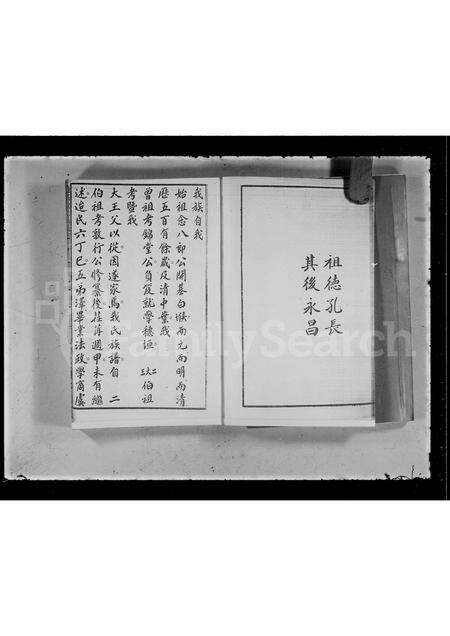 祖德孔長
其後永昌
我族自我
始祖念八郎公開基白猴而元而明而清
歷五百有餘歲及清中葉我
曾祖考錦堂公負笈就學穗垣 伯祖
考暨我
大王父以從因遂家焉我氏族譜自 二
伯祖考敦行公修纂後荏苒週甲未有繼
述迨民六丁巳五弟澤畢業法政學商虞
FamilySearch